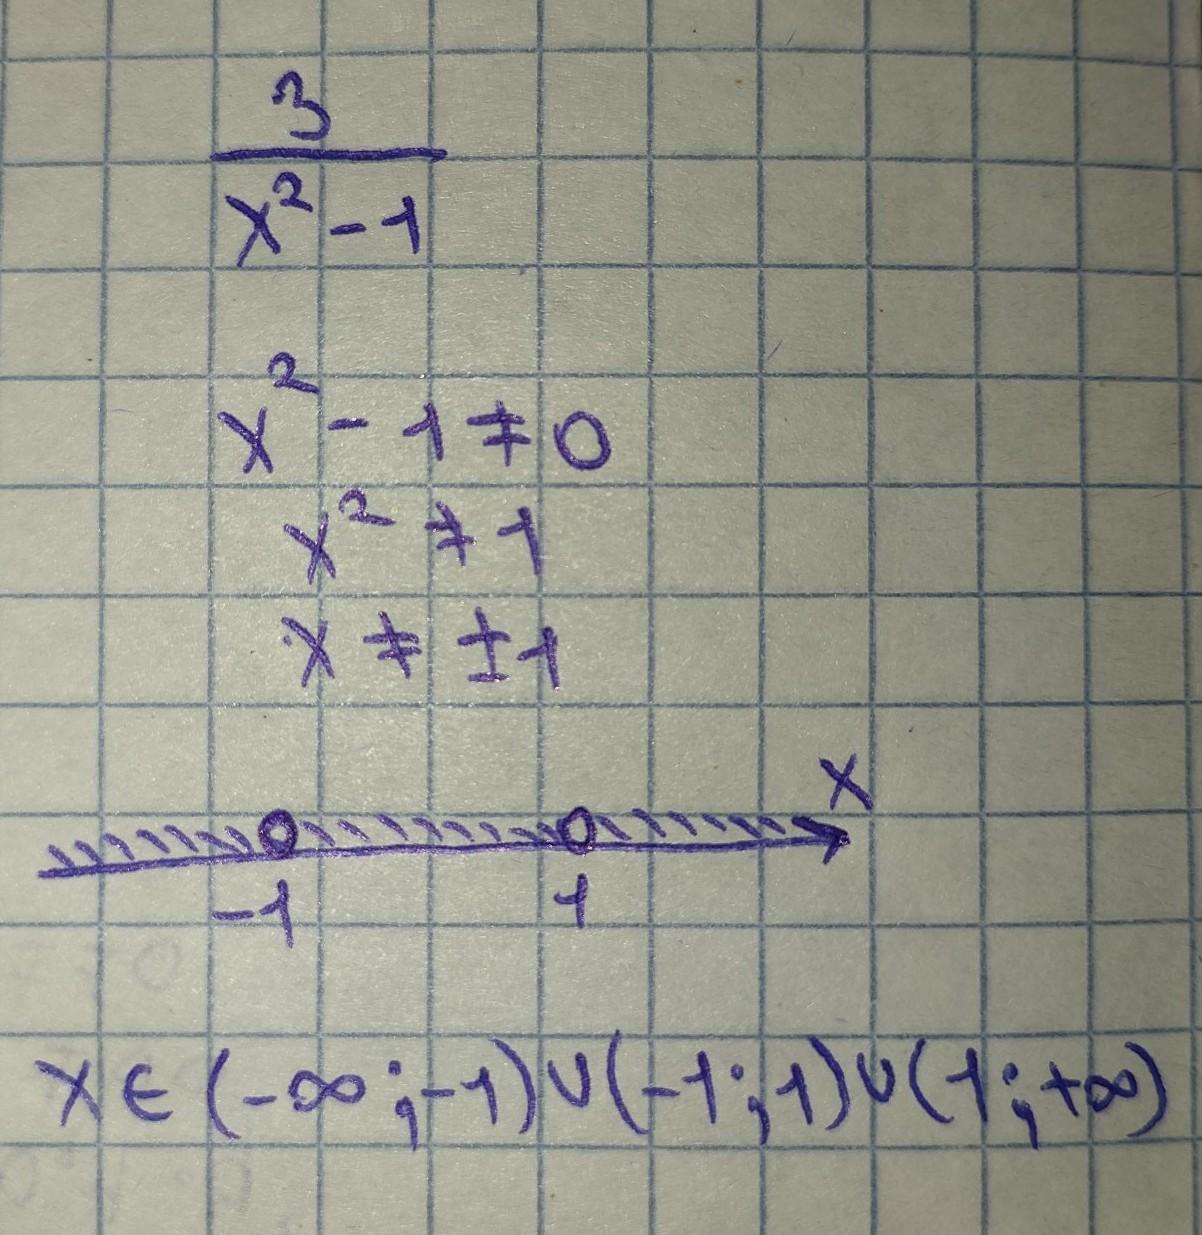 3
x² - 1
x² - 1 ≠ 0
x² ≠ 1
x ≠ ±1
x
-1 1
x ∈ (-∞; -1) ∪ (-1; 1) ∪ (1; +∞)